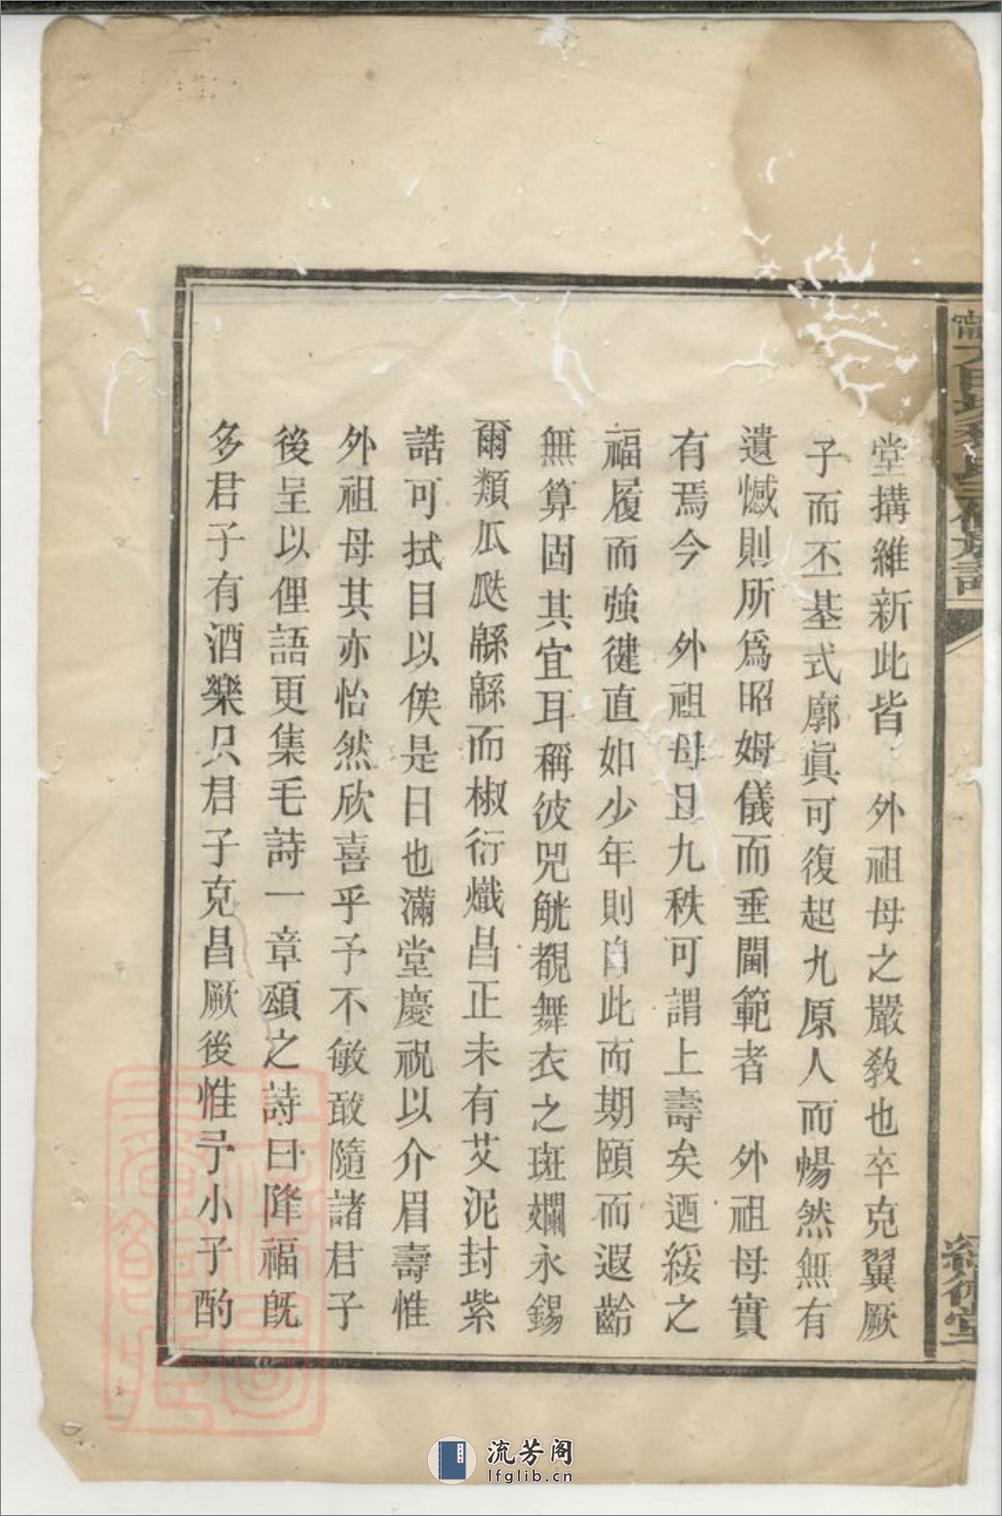 堂搆維新此皆　外祖母之嚴敎也卒克翼厥
子而丕基式廓眞可復起九原人而暢然無有
遺憾則所爲昭姆儀而垂閫範者　外祖母實
有焉今　外祖母日九秩可謂上壽矣迺綏之
福履而強徤直如少年則自此而期頤而遐齡
無算固其宜耳稱彼兕觥覩舞衣之斑斕永錫
爾類瓜瓞緜緜而椒衍熾昌正未有艾泥封紫
誥可拭目以俟是日也滿堂慶祝以介眉壽惟
外祖母其亦怡然欣喜乎予不敏敢隨諸君子
後呈以俚語更集毛詩一章頌之詩曰降福旣
多君子有酒樂只君子克昌厥後惟予小子酌
流芳阁
lfglib.cn